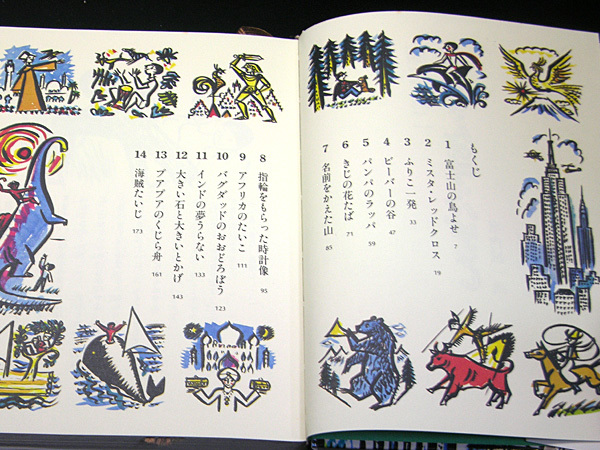 もくじ
1 富士山の鳥よせ 7
2 ミスタ・レッドクロス 19
3 ふりこ一発 33
4 ビーバーの谷 47
5 パンパのラッパ 59
6 きじの花たば 71
7 名前をかえた山 85
8 指輪をもらった時計像 95
9 アフリカのたいこ 111
10 バグダッドのおおどろぼう 123
11 インドの夢うらない 133
12 大きい石と大きいとかげ 143
13 プアプアのくじら舟 161
14 海賊たいじ 173